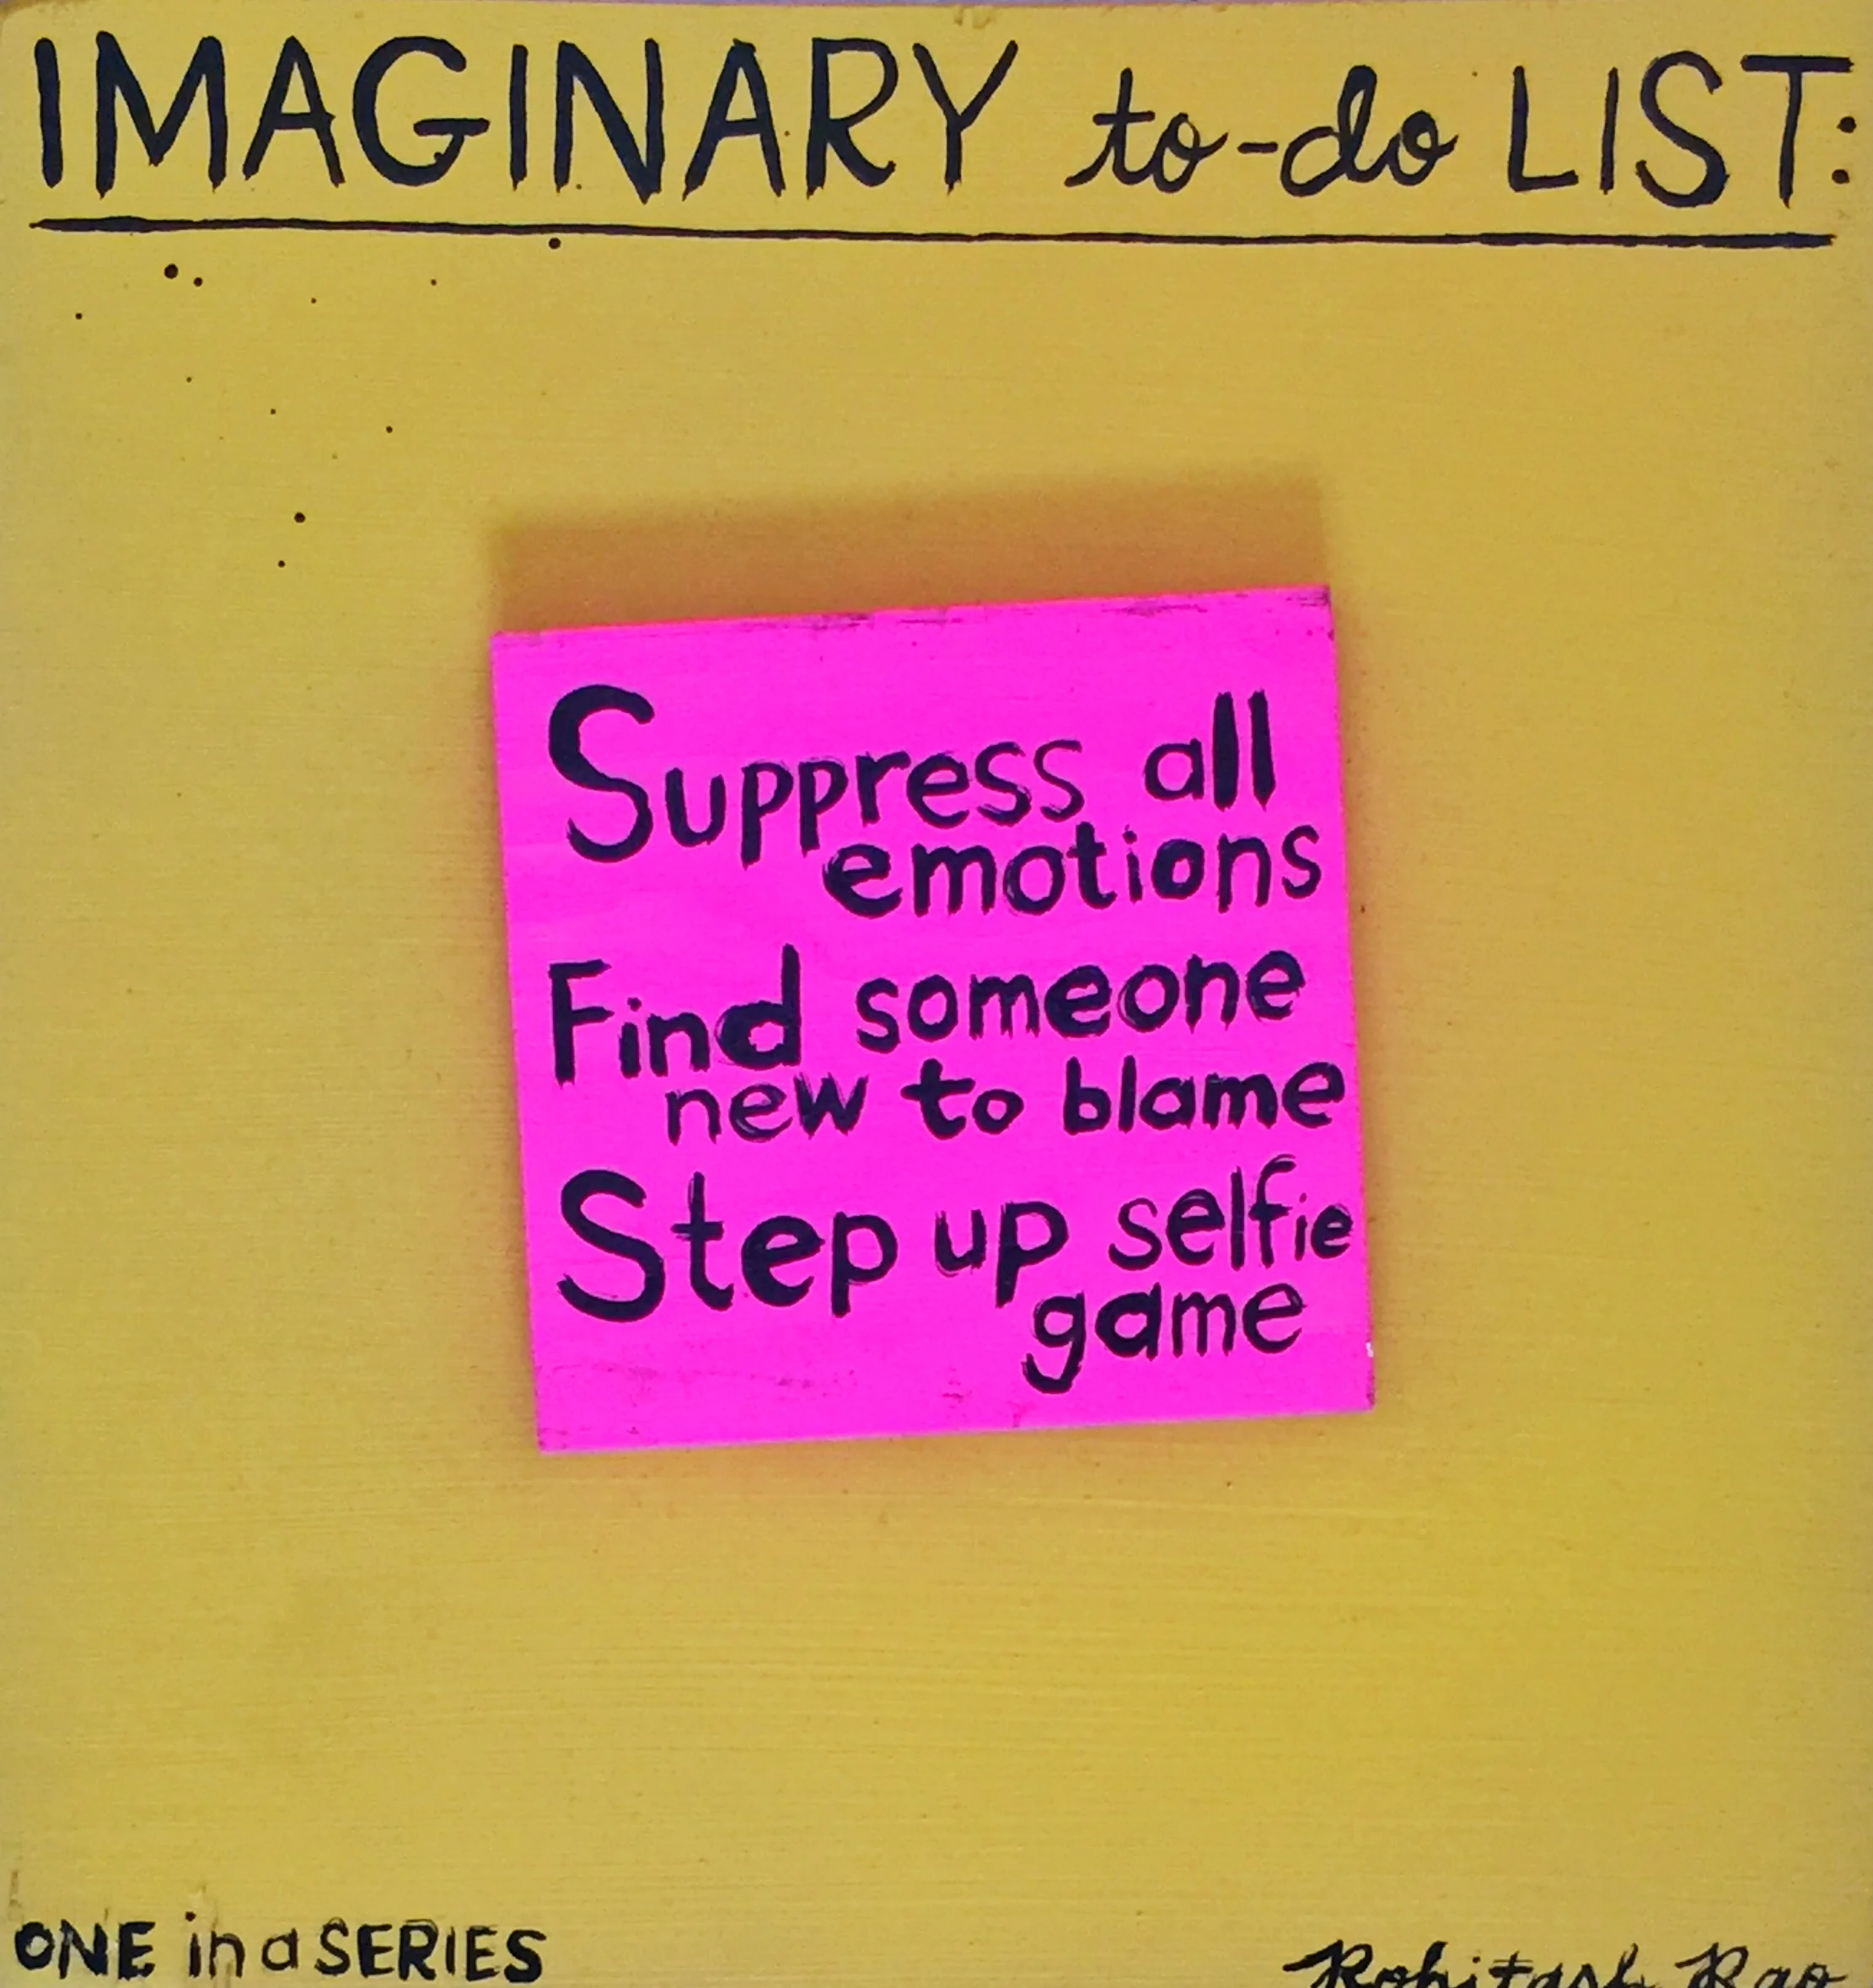 IMAGINARY to-do LIST:
Suppress all
emotions
Find someone
new to blame
Step up selfie
game
ONE in a SERIES
Rohitash Rao